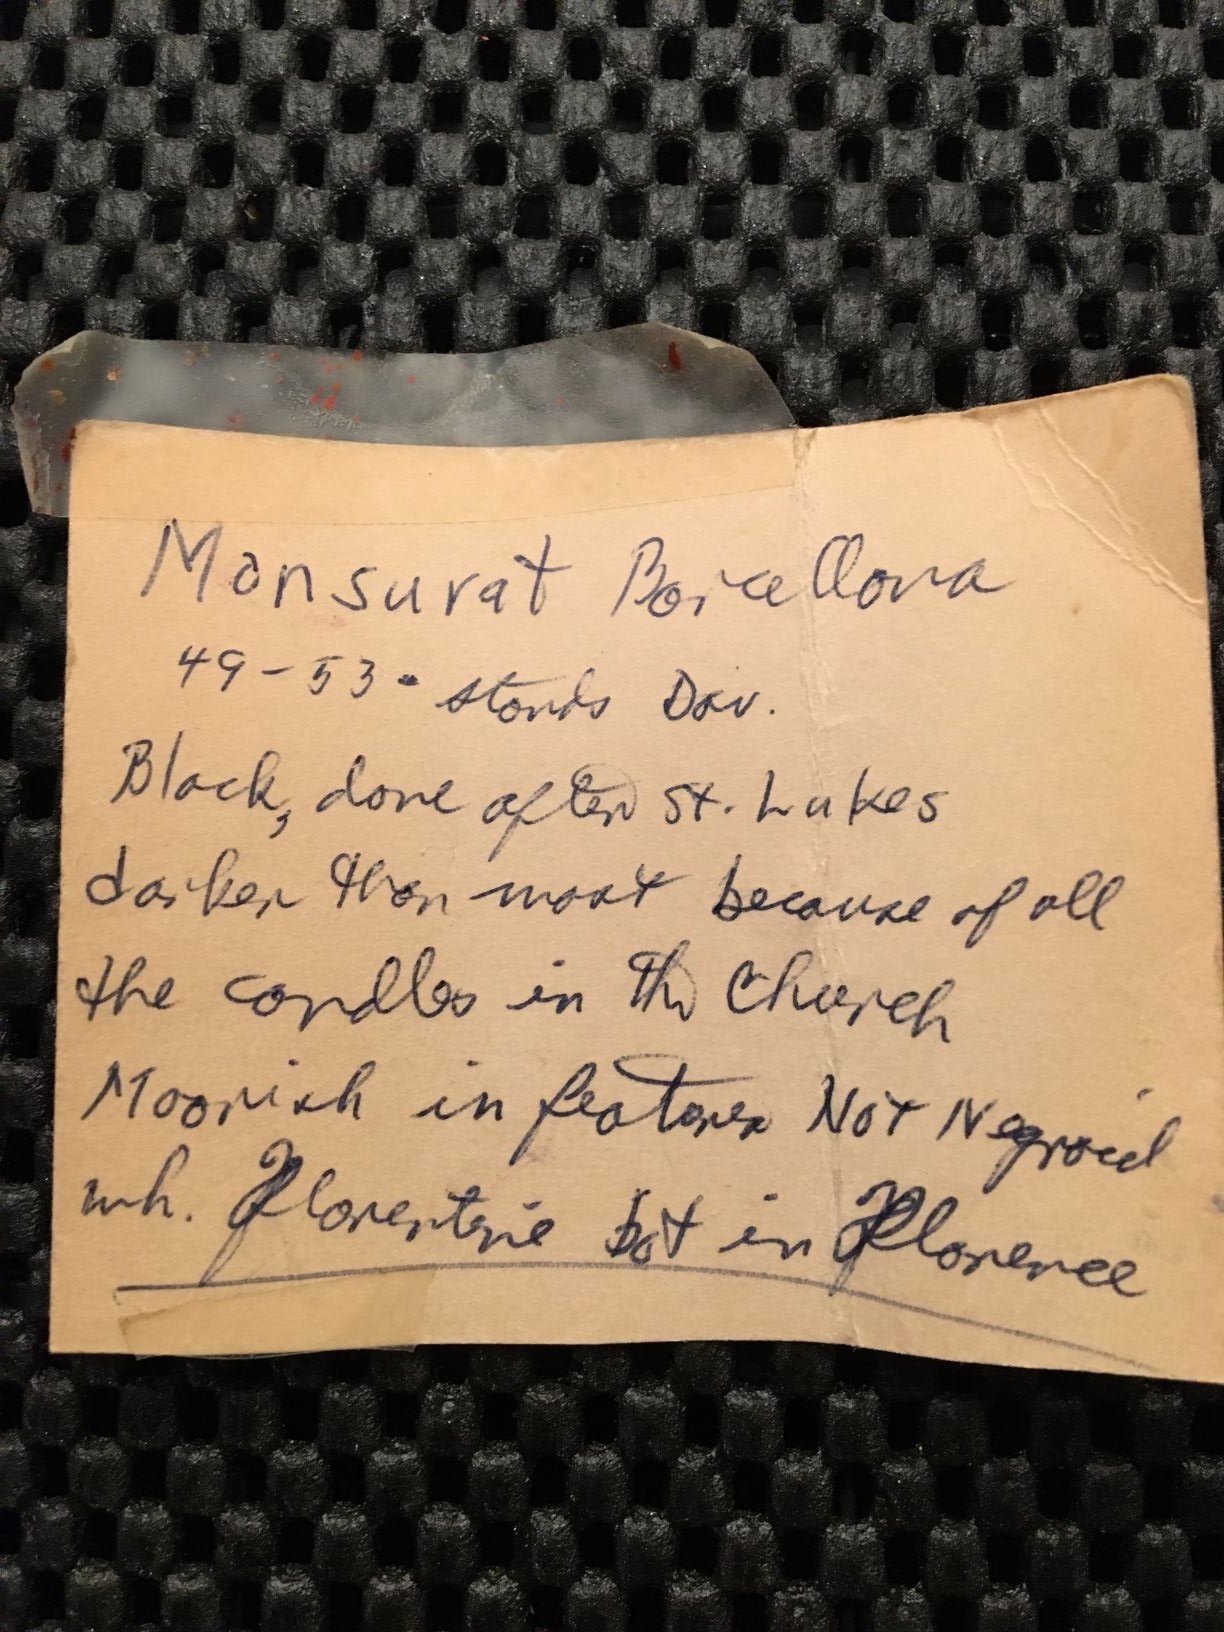 Monsurat Barcellona
49-53. stands Dav.
Black, done after St. Lukes
darker than most because of all
the candles in the Church
Moorish in features Not Negroid
wh. Florentine bot in Florence